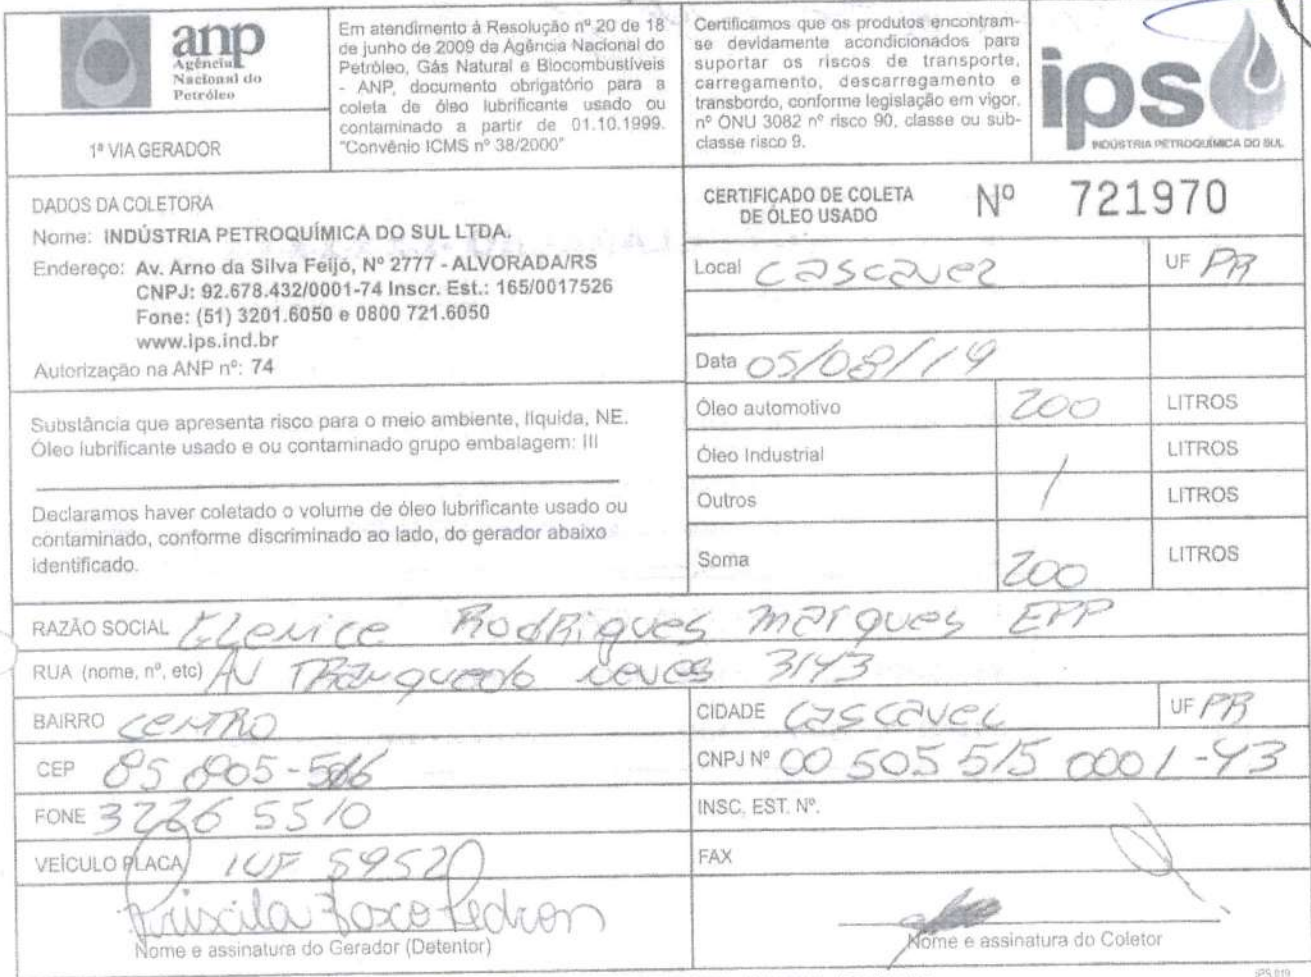 anp
Agência
Nacional do
Petróleo
1ª VIA GERADOR
Em atendimento à Resolução nº 20 de 18
de junho de 2009 da Agência Nacional do
Petróleo, Gás Natural e Biocombustíveis
- ANP, documento obrigatório para a
coleta de óleo lubrificante usado ou
contaminado a partir de 01.10.1999.
"Convênio ICMS nº 38/2000"
Certificamos que os produtos encontram-
se devidamente acondicionados para
suportar os riscos de transporte,
carregamento, descarregamento e
transbordo, conforme legislação em vigor.
nº ONU 3082 nº risco 90, classe ou sub-
classe risco 9.
ips
INDÚSTRIA PETROQUÍMICA DO SUL
DADOS DA COLETORA
Nome: INDÚSTRIA PETROQUÍMICA DO SUL LTDA.
Endereço: Av. Arno da Silva Feijó, Nº 2777 - ALVORADA/RS
CNPJ: 92.678.432/0001-74 Inscr. Est.: 165/0017526
Fone: (51) 3201.6050 e 0800 721.6050
www.ips.ind.br
Autorização na ANP nº: 74
CERTIFICADO DE COLETA
DE ÓLEO USADO
Nº 721970
Local Cascavel UF PR
Data 05/08/19
Substância que apresenta risco para o meio ambiente, líquida, NE.
Óleo lubrificante usado e ou contaminado grupo embalagem: III
Declaramos haver coletado o volume de óleo lubrificante usado ou
contaminado, conforme discriminado ao lado, do gerador abaixo
identificado.
Óleo automotivo 200 LITROS
Óleo Industrial LITROS
Outros LITROS
Soma 200 LITROS
RAZÃO SOCIAL Rodrigues Marques EPP
RUA (nome, nº, etc) AV neves 3143
BAIRRO CENTRO
CIDADE Cascavel UF PR
CEP 85 805-
CNPJ Nº 00 505 515 0001-43
FONE 3226 5510
INSC. EST. Nº.
VEÍCULO PLACA
FAX
Priscila Pedron
Nome e assinatura do Gerador (Detentor)
Nome e assinatura do Coletor